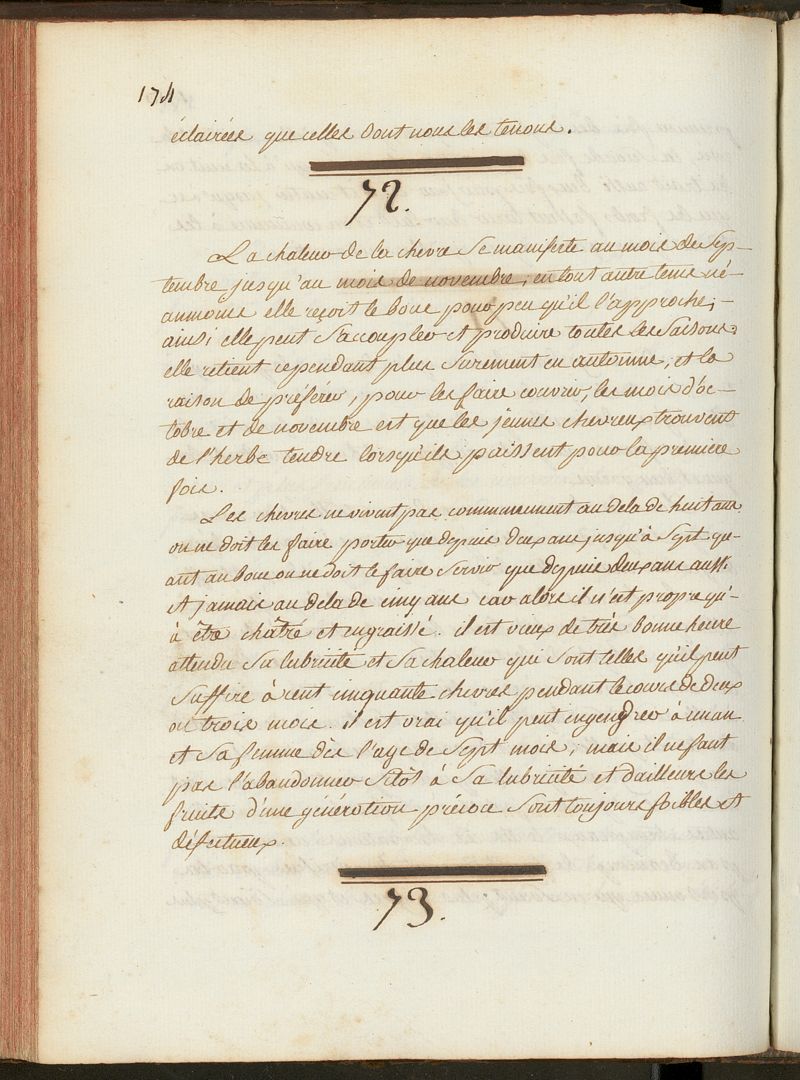 174
éclairées que celles dont nous les tenons.
72.
La chaleur de la chevre se manifeste au mois de Sep-
tembre jusqu'au mois de novembre; en tout autre tems né-
anmoins elle reçoit le bouc pour peu qu'il l'approche; -
ainsi elle peut s'accoupler et produire toutes les saisons:
elle retient cependant plus surement en automne, et la
raison de préférer, pour les faire couvrir, les mois d'oc-
tobre et de novembre est que les jeunes chevreux trouvent
de l'herbe tendre lorsqu'ils paissent pour la premiere
fois.
Les chevres ne vivent pas communement au dela de huit ans
on ne doit les faire porter que depuis deux ans jusqu'à sept qu-
ant au bouc on ne doit le faire servir que depuis deux ans aussi
et jamais au dela de cinq ans car alors il n'est propre qu'-
à être châtré et engraissé. il est vieux de très bonne heure
attendu sa lubricité et sa chaleur qui sont telles qu'il peut
suffire à cent cinquante chevres pendant le cours de deux
ou trois mois. il est vrai qu'il peut engendrer à un an
et sa femme dès l'age de sept mois; mais il ne faut
pas l'abandonner sitôt à sa lubricité et d'ailleurs les
fruits d'une génération précoce sont toujours foibles et
défectueux.
73.